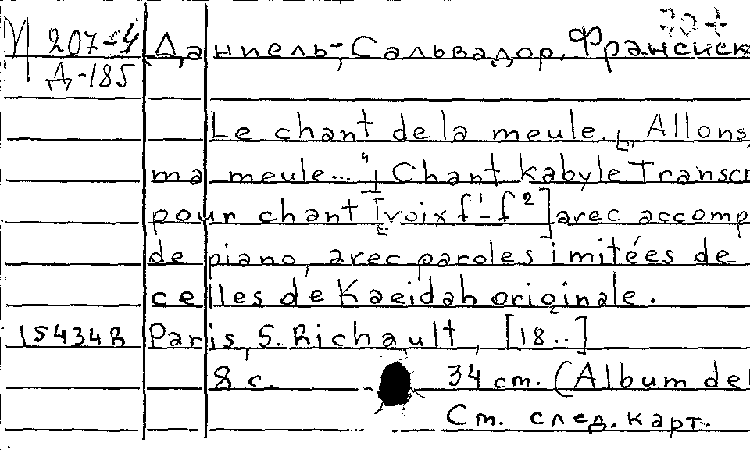 И 207-4 Даниель-Сальвадор, Франсиск
Д-185
Le chant de la meule. [„Allons,
ma meule..."] Chant kabyle Transcr
pour chant [voix f¹-f²] avec accomp
de piano, avec paroles imitées de
celles de Kaeidah originale.
15434R Paris, S. Richault, [18..]
8 c. 34 cm. (Album de
См. след. карт.